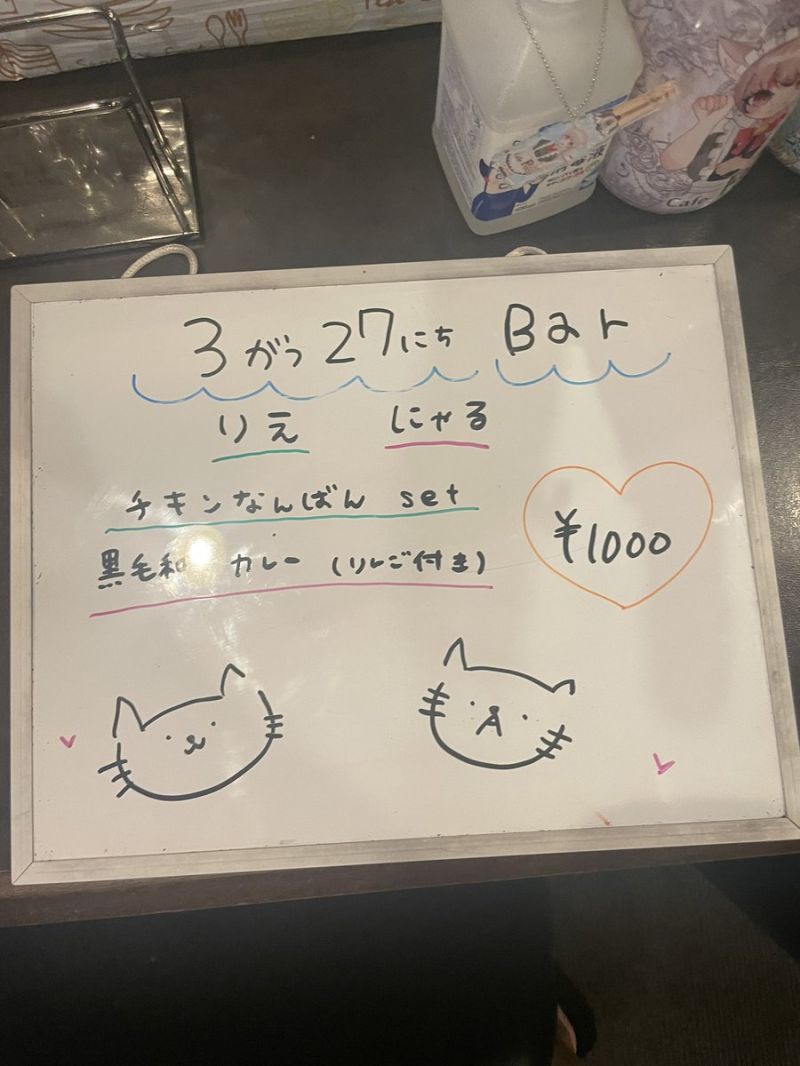 3がつ27にち Bar
りえ にゃる
チキンなんばん set
黒毛和 カレー (りんご付き)
¥1000
Cafe